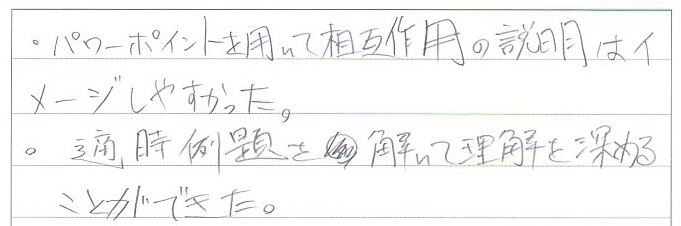 ・パワーポイントを用いて相互作用の説明はイ
メージしやすかった。
。適時例題を解いて理解を深める
ことができた。